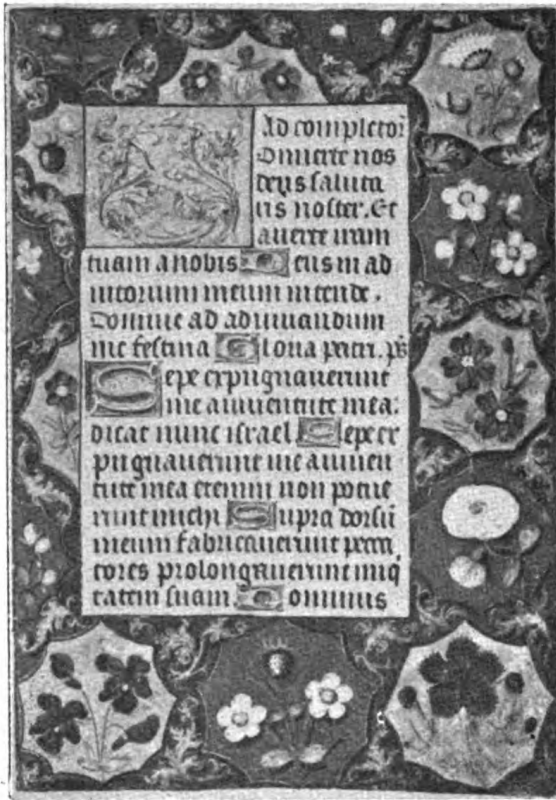 Ad completoř
Onuerte nos
deus saluta
ris noster. Et
auerte iram
tuam a nobis Deus in ad
iutorium meum intende.
Domine ad adiuuandum
me festina Gloria patri. ps̄
Sepe expugnauerunt
me a iuuentute mea:
dicat nunc israel Sepe ex
pugnauerunt me a iuuen
tute mea etenim non potue
runt michi Supra dorsū
meum fabricauerunt pecca
tores prolongauerunt iniq
tatem suam Dominus